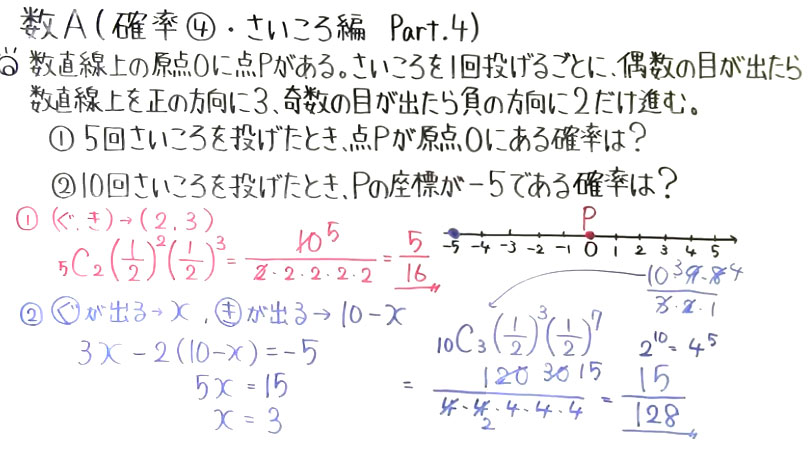 数A(確率④・さいころ編 Part.4)
◎ 数直線上の原点Oに点Pがある。さいころを1回投げるごとに、偶数の目が出たら
数直線上を正の方向に3、奇数の目が出たら負の方向に2だけ進む。
① 5回さいころを投げたとき、点Pが原点Oにある確率は?
②10回さいころを投げたとき、Pの座標が-5である確率は?
① (ぐ,き)→(2,3)
₅C₂(1/2)²(1/2)³ = 10 5/2・2・2・2・2 = 5/16
P
-5 -4 -3 -2 -1 0 1 2 3 4 5
② ぐが出る→x , きが出る→10-x
3x-2(10-x)=-5
5x=15
x=3
10 3 9・8 4/3・2・1
₁₀C₃(1/2)³(1/2)⁷ 2¹⁰=4⁵
= 120 30 15/4・4・4・4・4 2 = 15/128